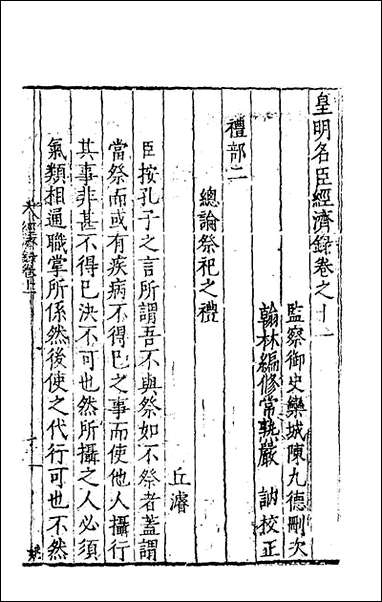 皇明名臣經濟錄卷之十一
監察御史欒城陳九德刪次
翰林編修常熟嚴訥校正
禮部二
總論祭祀之禮
丘濬
臣按孔子之言所謂吾不與祭如不祭者蓋謂
當祭而或有疾病不得已之事而使他人攝行
其事非甚不得已決不可也然所攝之人必須
氣類相通職掌所係然後使之代行可也不然